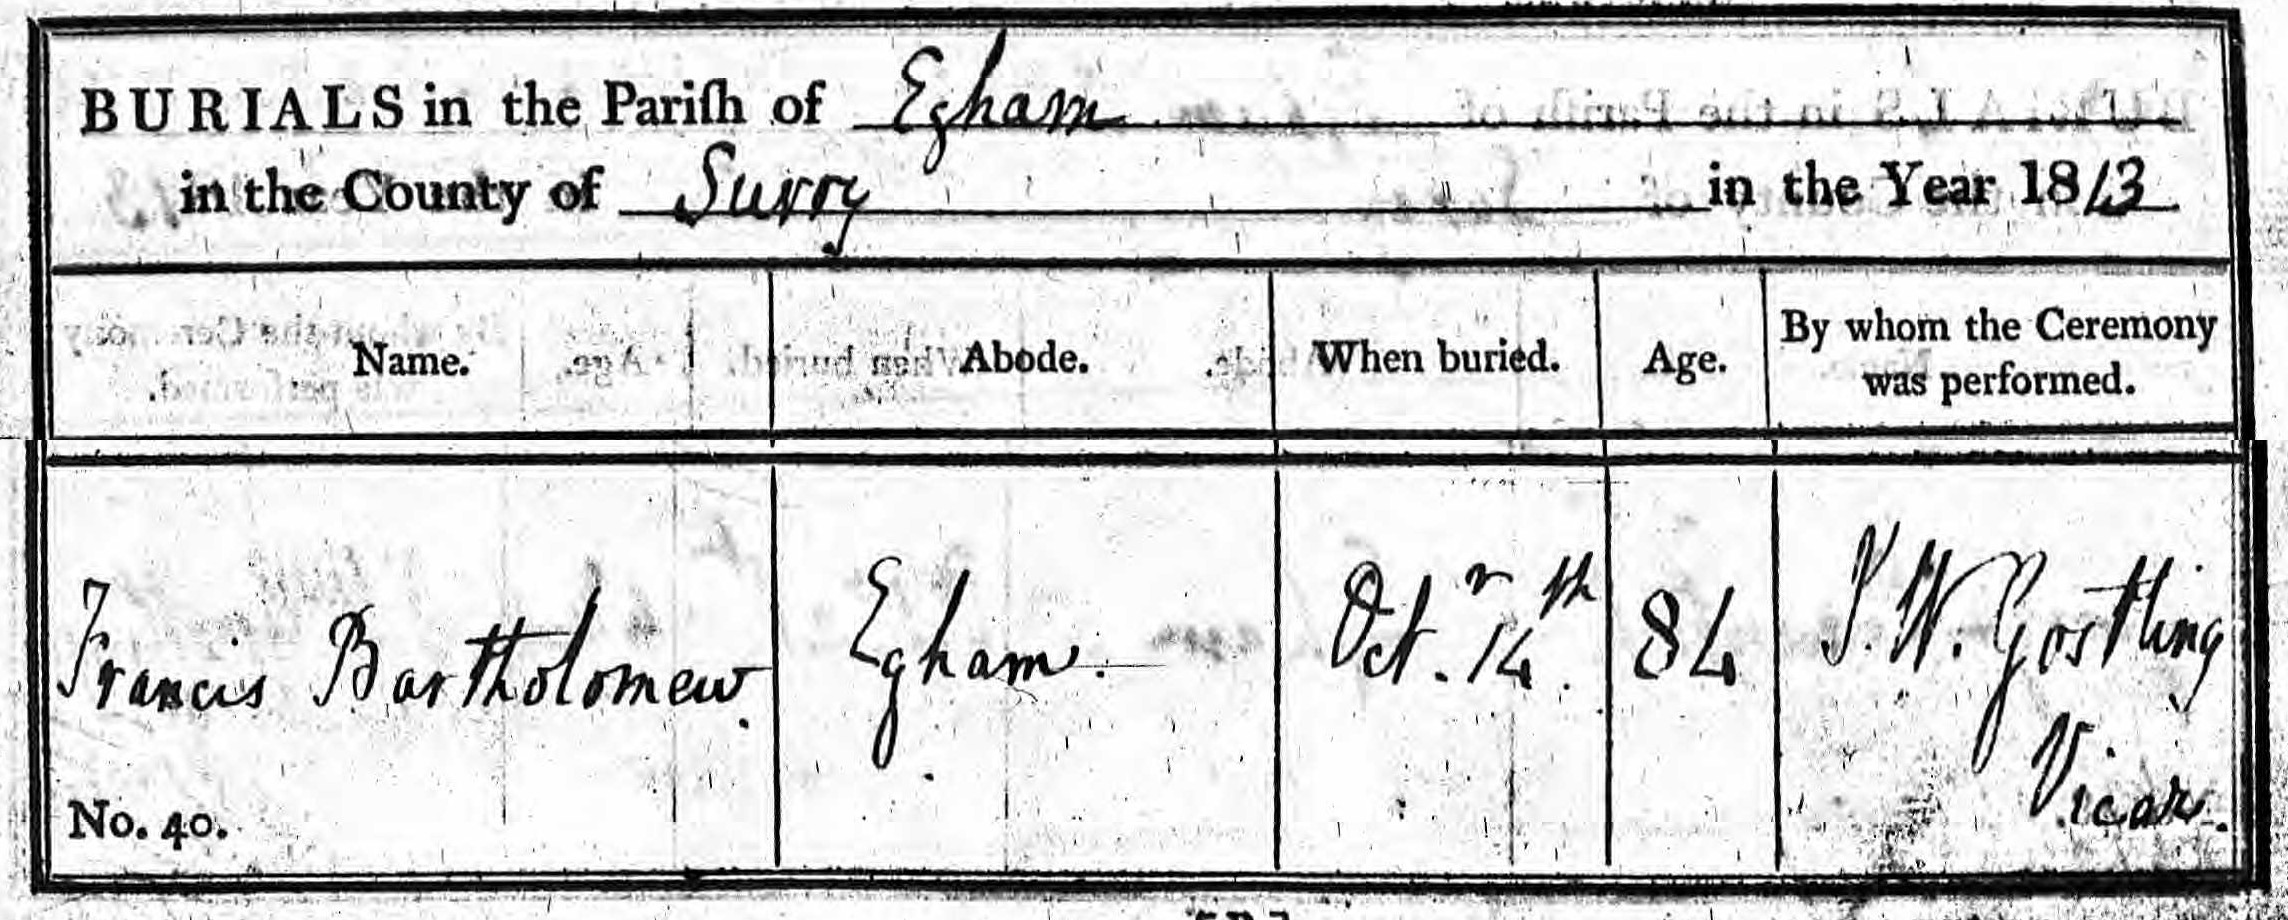 BURIALS in the Pariſh of Egham
in the County of Surry in the Year 1813
Name. Abode. When buried. Age. By whom the Ceremony was performed.
Francis Bartholomew. Egham. Octr. 14th. 84 J. W. Gostling
Vicar.
No. 40.